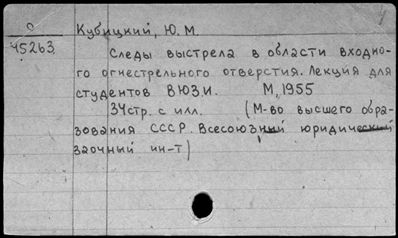 О
Кубицкий, Ю. М.
45263
Следы выстрела в области входно-
го огнестрельного отверстия. Лекция для
студентов ВЮЗИ. М, 1955
34стр. с илл. (М-во высшего обра-
зования СССР. Всесоюзный юридический
заочный ин-т)